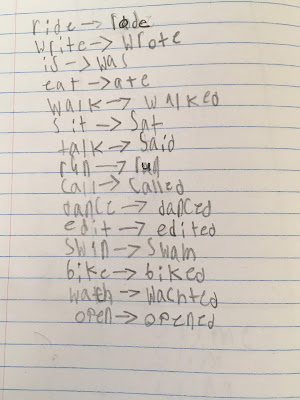 ride → rode
write → wrote
is → was
eat → ate
walk → walked
sit → sat
talk → said
run → run
call → called
dance → danced
edit → edited
swin → swam
bike → biked
wath → wachted
open → opened